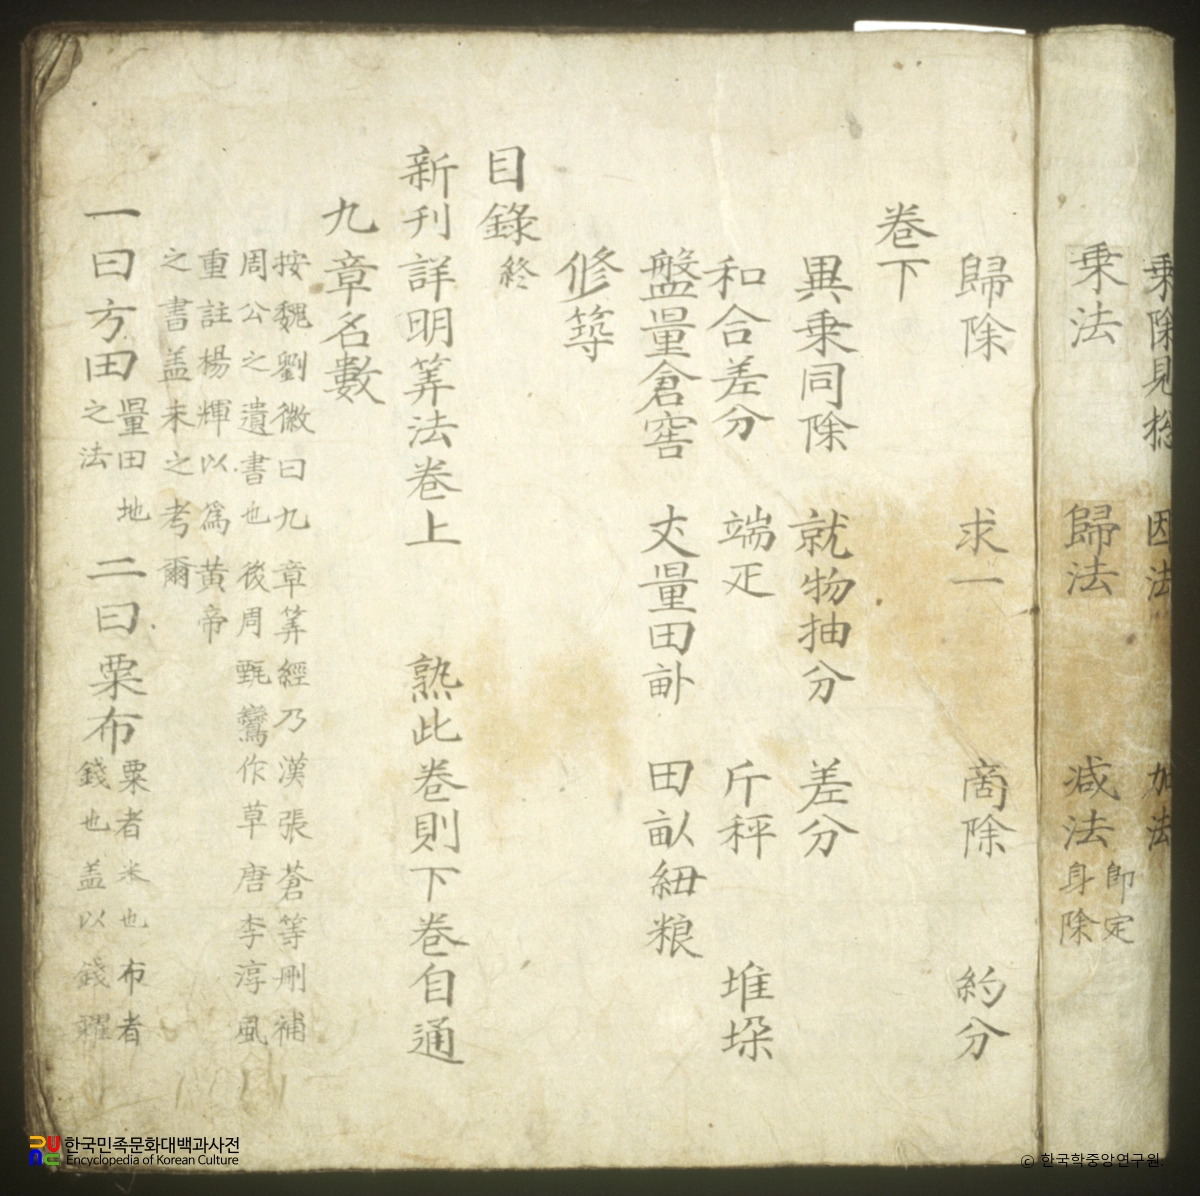 乗除見総 因法 加法
乗法 歸法 減法 即定身除
歸除 求一 商除 約分
卷下
異乗同除 就物抽分 差分
和合差分 端疋 斤秤 堆垜
盤量倉窖 丈量田畝 田畝紐粮
修築
目錄 終
新刋詳明筭法卷上 熟此卷則下卷自通
九章名數
按魏劉徽曰九章筭經乃漢張蒼等刪補
周公之遺書也後周甄鸞作草唐李淳風
重註楊輝以爲黃帝
之書盖未之考爾
一曰方田 量田地之法 二曰粟布 粟者米也布者錢也盖以錢糶
한국민족문화대백과사전
Encyclopedia of Korean Culture
© 한국학중앙연구원